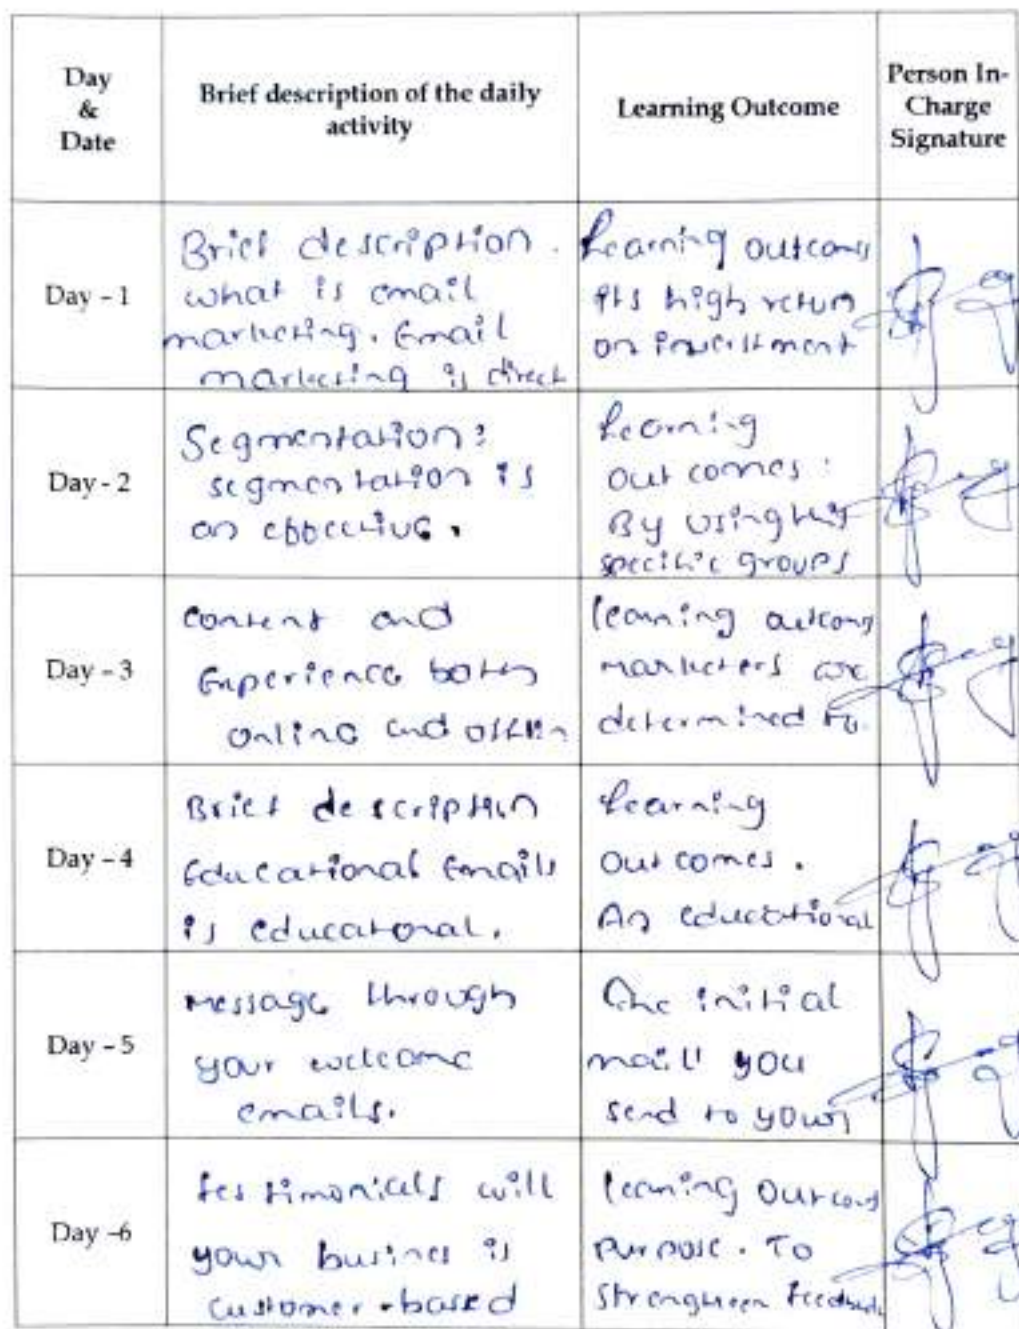 Day
&
Date
Brief description of the daily
activity
Learning Outcome
Person In-
Charge
Signature
Day - 1
Brief description.
what is email
marketing. Email
marketing is direct
Learning outcoms
its high return
on investment
Day - 2
Segmentation:
segmentation is
an effective.
Learning
outcomes:
By using this
specific groups
Day - 3
content and
Experience both
online and
learning outcoms
marketers are
determined to
Day - 4
Brief description
Educational Emails
is educatonal.
Learning
outcomes.
An educational
Day - 5
message through
your welcome
emails.
The initial
mail you
send to your
Day -6
testimonials will
your busines is
customer-based
learning outcoms
purpose. To
strengthen feedback